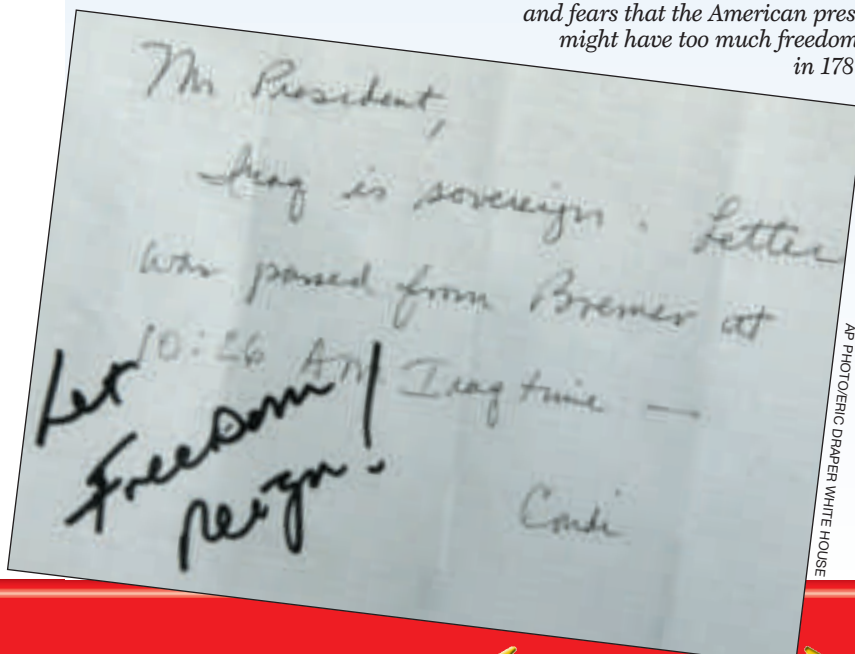 and fears that the American pres
might have too much freedom
in 178
Mr President,
Iraq is sovereign. Letter
was passed from Bremer at
10:26 AM Iraq time —
Condi
Let
Freedom
Reign!
AP PHOTO/ERIC DRAPER WHITE HOUSE